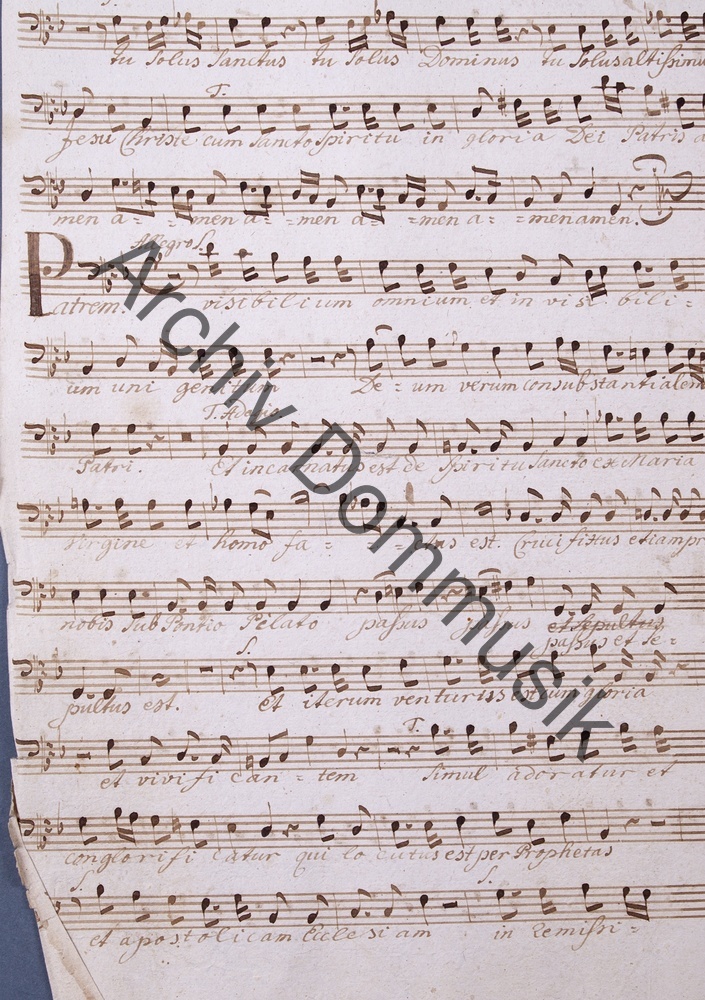 tu Solus Sanctus tu Solus Dominus tu Solus altissimu
T.
Jesu Christe cum Sancto Spiritu in gloria Dei Patris a
men a - - men a - men a - - men a - - men amen.
Allegro S.
Patrem. visibilium omnium et in visi bili -
um uni genitum De - um verum consubstantialem
T. Adagio
Patri. Et incarnatus est de Spiritu Sancto ex Maria
virgine et homo fa - - - tus est. Crucifixus etiam pr
nobis Sub Pontio Pilato passus passus et sepultus
passus et se -
S.
pultus est. et iterum venturus est cum gloria
T.
et vivifi can - tem simul adoratur et
conglorifi catur qui locutus est per Prophetas
S. S.
et apostolicam Ecclesiam in remissi -
Archiv Dommusik